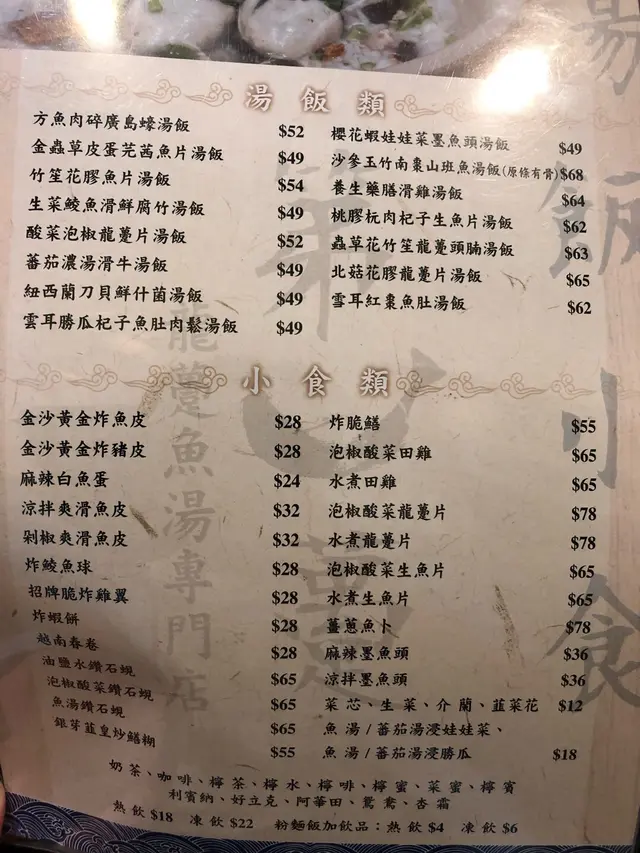 湯飯類
方魚肉碎廣島蠔湯飯 $52
金蟲草皮蛋芫茜魚片湯飯 $49
竹笙花膠魚片湯飯 $54
生菜鯪魚滑鮮腐竹湯飯 $49
酸菜泡椒龍躉片湯飯 $52
蕃茄濃湯滑牛湯飯 $49
紐西蘭刀貝鮮什菌湯飯 $49
雲耳勝瓜杞子魚肚肉鬆湯飯 $49
櫻花蝦娃娃菜墨魚頭湯飯 $49
沙參玉竹南棗山班魚湯飯(原條有骨) $68
養生藥膳滑雞湯飯 $64
桃膠杬肉杞子生魚片湯飯 $62
蟲草花竹笙龍躉頭腩湯飯 $63
北菇花膠龍躉片湯飯 $65
雪耳紅棗魚肚湯飯 $62
小食類
金沙黃金炸魚皮 $28
金沙黃金炸豬皮 $28
麻辣白魚蛋 $24
涼拌爽滑魚皮 $32
剁椒爽滑魚皮 $32
炸鯪魚球 $28
招牌脆炸雞翼 $28
炸蝦餅 $28
越南春卷 $28
油鹽水鑽石蜆 $65
泡椒酸菜鑽石蜆 $65
魚湯鑽石蜆 $65
銀芽韮皇炒鱔糊 $55
炸脆鱔 $55
泡椒酸菜田雞 $65
水煮田雞 $65
泡椒酸菜龍躉片 $78
水煮龍躉片 $78
泡椒酸菜生魚片 $65
水煮生魚片 $65
薑蔥魚卜 $78
麻辣墨魚頭 $36
涼拌墨魚頭 $36
菜芯、生菜、介蘭、韮菜花 $12
魚湯/蕃茄湯浸娃娃菜、
魚湯/蕃茄湯浸勝瓜 $18
奶茶、咖啡、檸茶、檸水、檸啡、檸蜜、菜蜜、檸賓
利賓納、好立克、阿華田、鴛鴦、杏霜
熱飲$18 凍飲$22 粉麵飯加飲品：熱飲$4 凍飲$6
龍躉魚湯專門店
湯飯小食